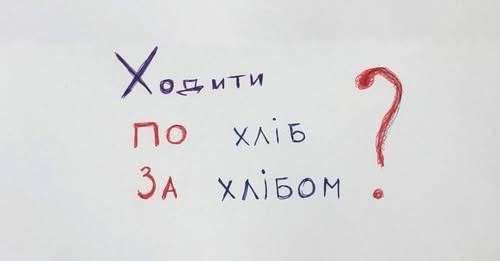 Ходити
ПО ХЛІБ
ЗА ХЛІБОМ ?